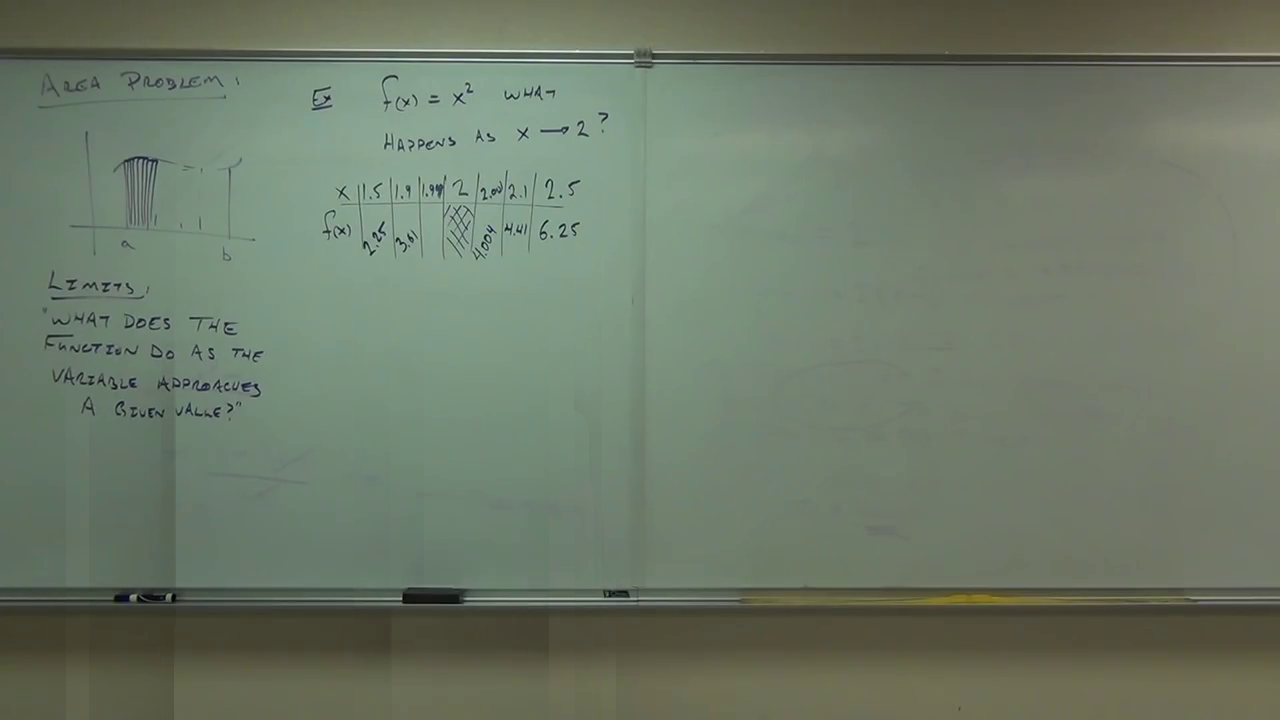 AREA PROBLEM:
a
b
LIMITS:
"WHAT DOES THE
FUNCTION DO AS THE
VARIABLE APPROACHES
A GIVEN VALUE?"
Ex f(x) = x² WHAT
HAPPENS AS x → 2?
x 1.5 1.9 2 2.1 2.5
f(x) 2.25 3.61 4.004 4.41 6.25